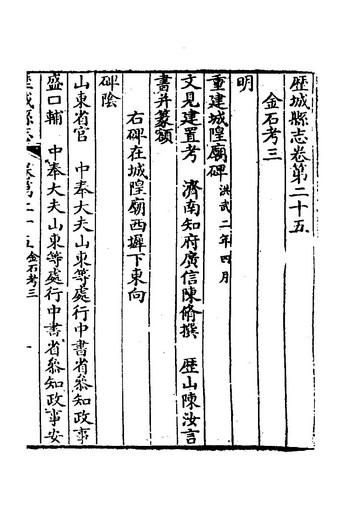 歷城縣志卷第二十五
金石考三
明
重建城隍廟碑 洪武二年四月
文見建置考 濟南知府廣信陳脩撰 歷山陳汝言
書并篆額
右碑在城隍廟西墀下東向
碑陰
山東省官 中奉大夫山東等處行中書省叅知政事
盛口輔 中奉大夫山東等處行中書省叅知政事安
歷城縣志 卷第二十五 金石考三 一